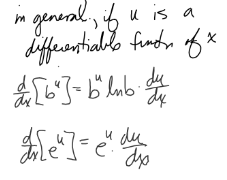 in general, if u is a
differentiable functn of x
d/dx [b^u] = b^u ln b · du/dx
d/dx [e^u] = e^u · du/dx